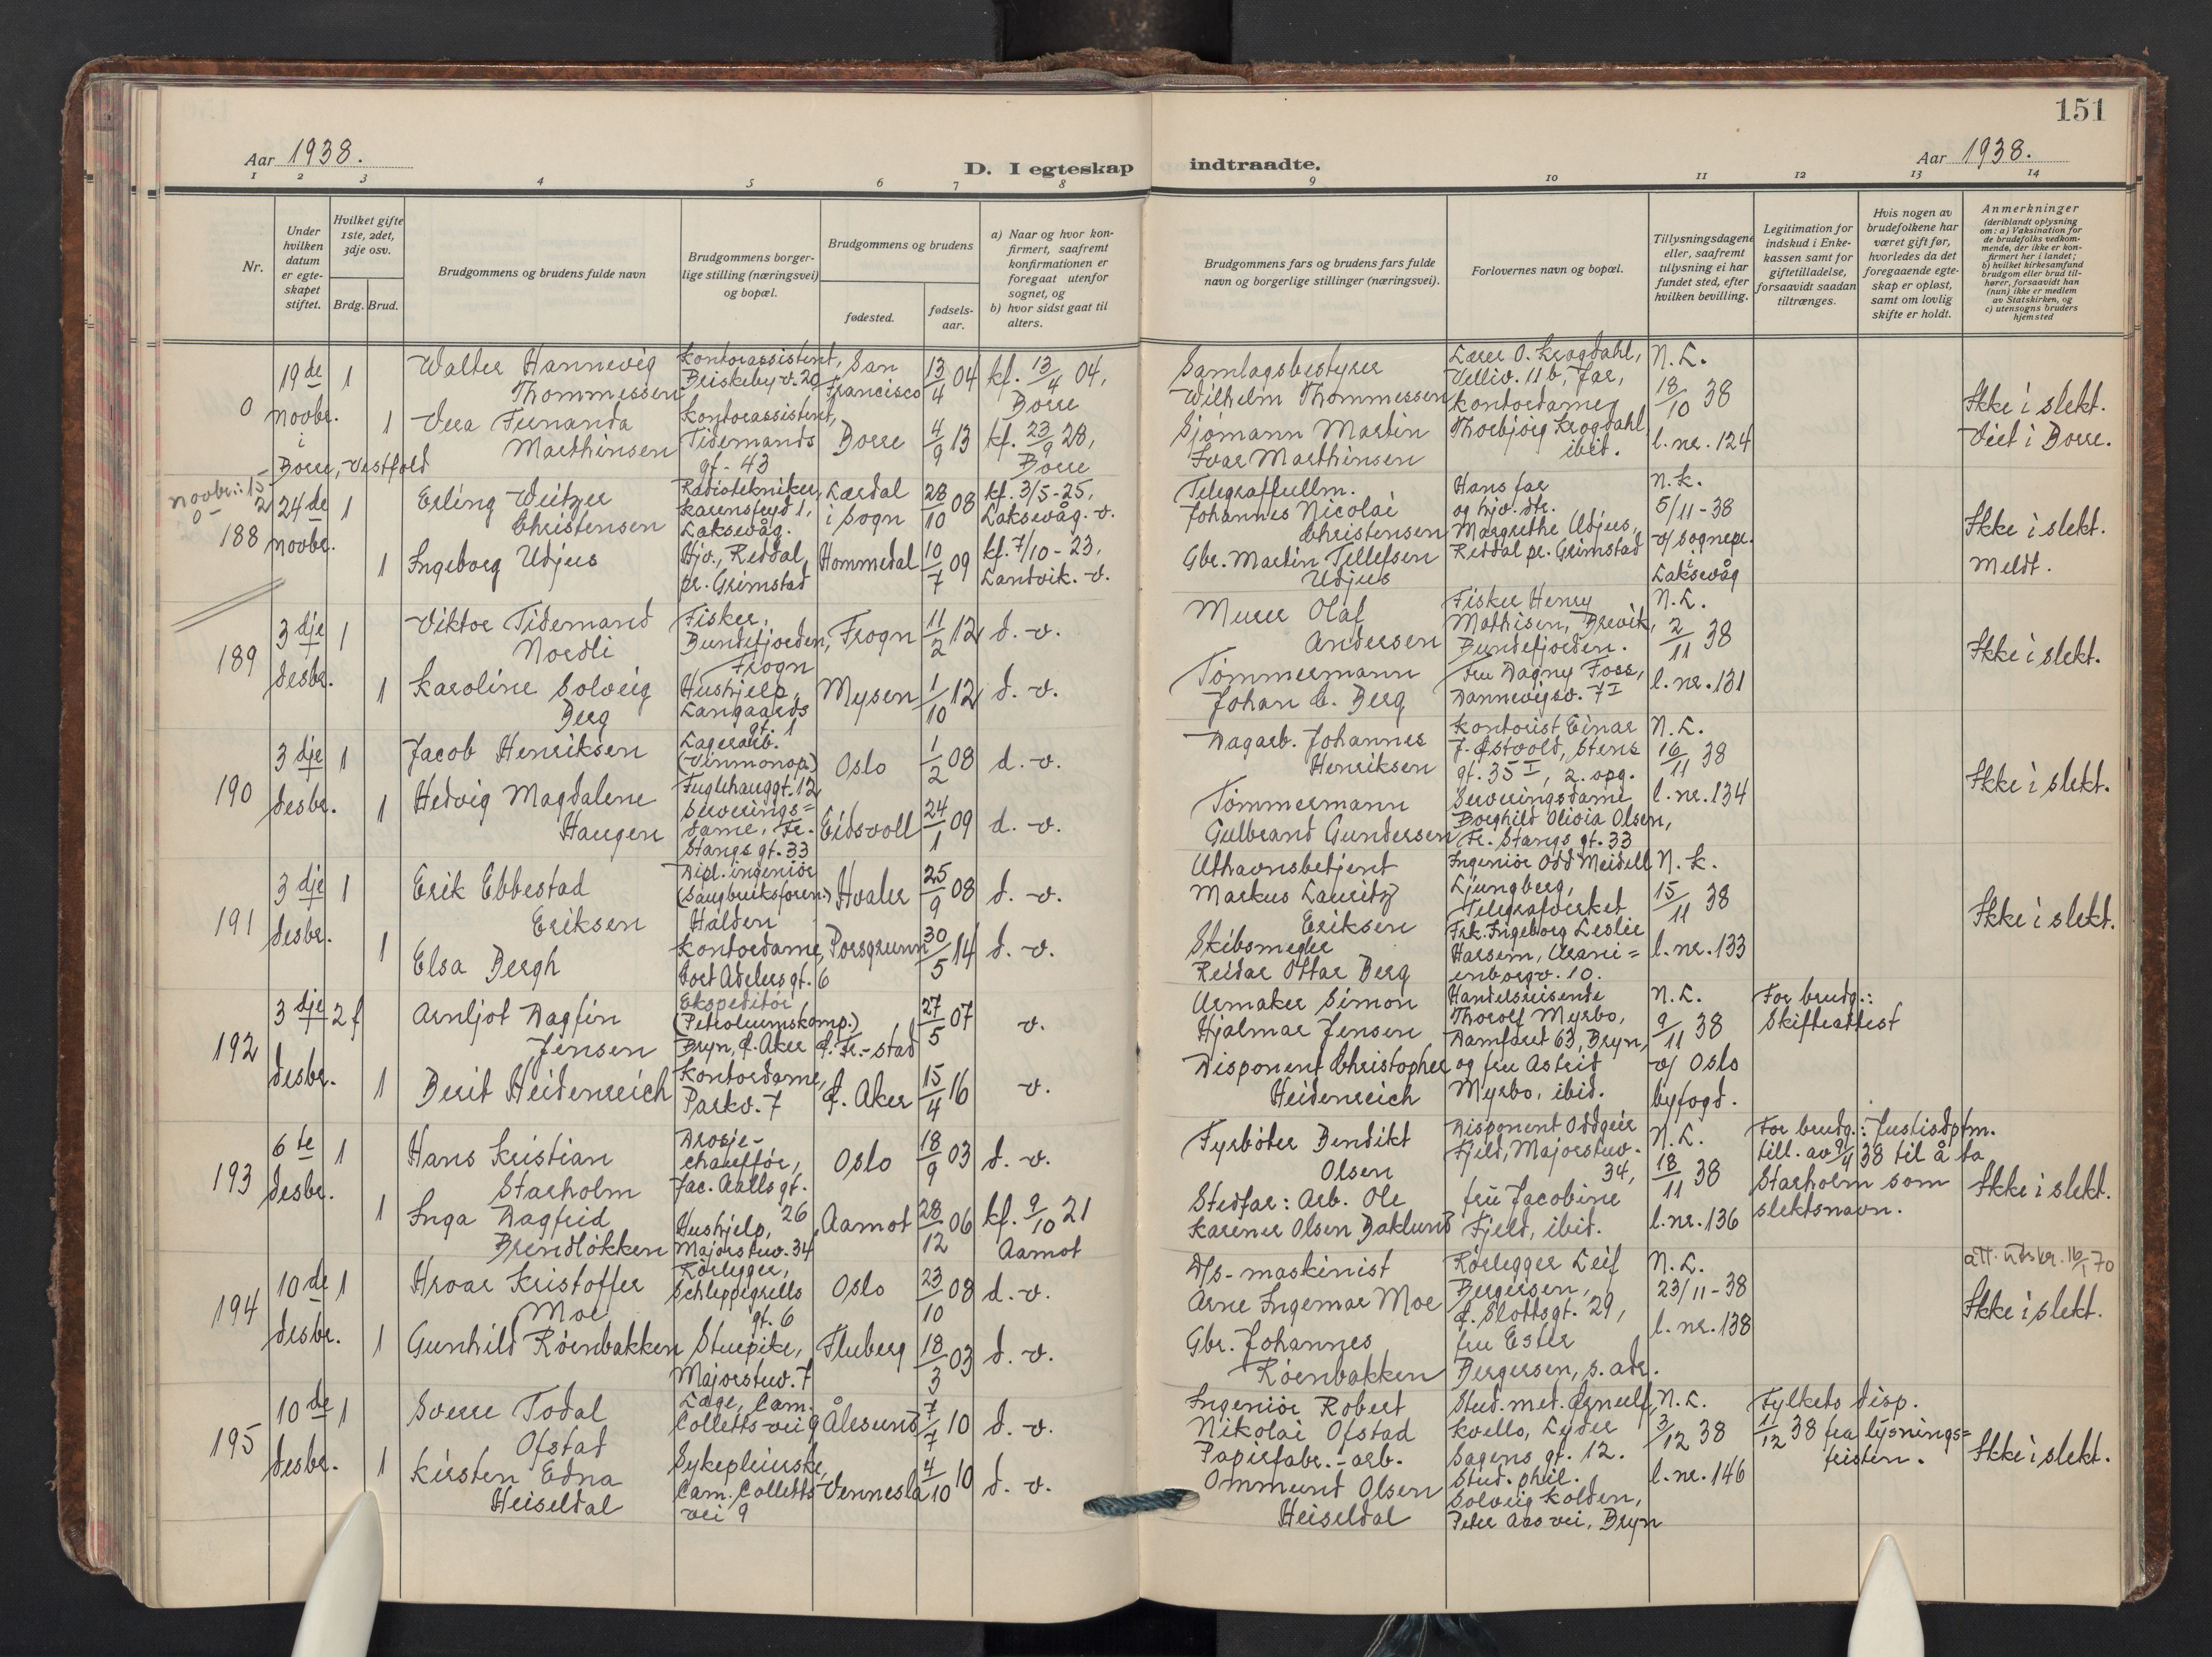 151
Aar 1938.
D. I egteskap indtraadte.
Aar 1938.
1 2 3 4 5 6 7 8 9 10 11 12 13 14
Nr.
Under hvilken datum er egteskapet stiftet.
Hvilket gifte 1ste, 2det, 3dje osv.
Brdg. Brud.
Brudgommens og brudens fulde navn
Brudgommens borgerlige stilling (næringsvei) og bopæl.
Brudgommens og brudens
fødested.
fødselsaar.
a) Naar og hvor konfirmert, saafremt konfirmationen er foregaat utenfor sognet, og
b) hvor sidst gaat til alters.
Brudgommens fars og brudens fars fulde navn og borgerlige stillinger (næringsvei).
Forlovernes navn og bopæl.
Tillysningsdagene eller, saafremt tillysning ei har fundet sted, efter hvilken bevilling.
Legitimation for indskud i Enkekassen samt for giftetilladelse, forsaavidt saadan tiltrænges.
Hvis nogen av brudefolkene har været gift før, hvorledes da det foregaaende egteskap er opløst, samt om lovlig skifte er holdt.
Anmerkninger
(deriblandt oplysning om: a) Vaksination for de brudefolks vedkommende, der ikke er konfirmert her i landet; b) hvilket kirkesamfund brudgom eller brud tilhører, forsaavidt han (hun) ikke er medlem av Statskirken, og c) utensogns bruders hjemsted
0
19de novbr. i Borre, Vestfold
1
Walter Hannevig Thommessen
Kontorassistent, Briskebyv. 20
San Francisco
13/4 04
kf. 13/4 04, Borre
Samlagsbestyrer Wilhelm Thommessen
Lærer O. Krogdahl, Velliv. 11b, Jar,
N.L. 18/10 38
1
Vera Fernanda Marthinsen
Kontorassistent, Tidemands gt. 43
Borre
4/9 13
kf. 23/9 28, Borre
Sjømann Martin Ivar Marthinsen
Kontordame Thorbjørg Krogdahl, ibid.
l. nr. 124
Ikke i slekt.
Viet i Borre.
novbr.: 15
0 2
188
24de novbr.
1
Erling Weitzer Christensen
Radiotekniker, Laksevåg.
Lærdal i Sogn
28/10 08
kf. 3/5-25, Laksevåg. v.
Telegraffullm. Johannes Nicolai Christensen
Hans far
N.k. 5/11-38
1
Ingeborg Udjus
Hjv., Reddal pr. Grimstad
Hommedal
10/7 09
kf. 7/10-23, Landvik. v.
Gbr. Martin Tellefsen Udjus
og hjv. dtr. Margrethe Udjus, Reddal pr. Grimstad
v/ sognepr. i Laksevåg
Ikke i slekt.
Meldt.
189
3dje desbr.
1
Viktor Tidemand Nordli
Fisker, Bundefjorden, Frogn
Frogn
11/2 12
d. v.
Murer Olaf Andersen
Fisker Henry Mathisen, Brevik, Bundefjorden.
N.L. 2/11 38
1
Karoline Solveig Berg
Hushjelp, Langaards gt. 1
Mysen
1/10 12
d. v.
Tømmermann Johan C. Berg
Fru Dagny Foss, Dannevigsv. 7 I
l. nr. 131
Ikke i slekt.
190
3dje desbr.
1
Jacob Henriksen
Lagerarb. (Vinmonop.) Fuglehauggt. 12
Oslo
1/2 08
d. v.
Dagarb. Johannes Henriksen
Kontorist Einar J. Østvold, Stens gt. 35 I, 2. opg.
N.L. 16/11 38
1
Hedvig Magdalene Haugen
Serveringsdame, Fr. Stangs gt. 33
Eidsvoll
24/1 09
d. v.
Tømmermann Gulbrand Gundersen
Serveringsdame Borghild Olivia Olsen, Fr. Stangs gt. 33
l. nr. 134
Ikke i slekt.
191
3dje desbr.
1
Erik Ebbestad Eriksen
Dipl. ingeniør (Saugbruksforen.) Halden
Hvaler
25/9 08
d. v.
Uthavnsbetjent Markus Lauritz Eriksen
Ingeniør Odd Meidell Ljungberg, Telegrafverket
N.k. 15/11 38
1
Elsa Bergh
Kontordame, Cort Adelers gt. 6
Porsgrunn
30/5 14
d. v.
Skibsmegler Reidar Ottar Berg
Frk. Ingeborg Leslie Harsem, Uranienborgv. 10.
l. nr. 133
Ikke i slekt.
192
3dje desbr.
2 f
Arnljot Dagfin Jensen
Ekspeditør (Petroleumskomp.) Bryn, Ø. Aker
Ø. Fr.-stad
27/5 07
v.
Urmaker Simon Hjalmar Jensen
Handelsreisende Thorolf Myrbo, Damfaret 63, Bryn,
N.L. 9/11 38
For brudg.: Skifteattest
1
Berit Heidenreich
Kontordame, Parkv. 7
Ø. Aker
15/4 16
v.
Disponent Christopher Heidenreich
og fru Astrid Myrbo, ibid.
v/ Oslo byfogd.
193
6te desbr.
1
Hans Kristian Starholm
Drosjechauffør, Jac. Aalls gt. 26
Oslo
18/9 03
d. v.
Fyrbøter Bendikt Olsen
Disponent Oddgeir Fjeld, Majorstuv. 34,
N.L. 18/11 38
For brudg.: Justisdptm. till. av 9/4 38 til å ta Starholm som slektsnavn.
1
Inga Dagfrid Brendløkken
Hushjelp, Majorstuv. 34
Aamot
28/12 06
kf. 9/10 21 Aamot
Stedfar: Arb. Ole Karenus Olsen Baklund
fru Jacobine Fjeld, ibid.
l. nr. 136
Ikke i slekt.
194
10de desbr.
1
Hroar Kristoffer Moe
Rørlegger, Schleppegrells gt. 6
Oslo
23/10 08
d. v.
D/s-maskinist Arne Ingemar Moe
Rørlegger Leif Bergersen, Ø. Slottsgt. 29,
N.L. 23/11-38
att. utskr. 16/1 70
1
Gunhild Røenbakken
Stuepike, Majorstuv. 7
Fluberg
18/3 03
d. v.
Gbr. Johannes Røenbakken
fru Ester Bergersen, s. adr.
l. nr. 138
Ikke i slekt.
195
10de desbr.
1
Sverre Todal Ofstad
Læge, Cam. Colletts vei 9
Ålesund
7/7 10
d. v.
Ingeniør Robert Nikolai Ofstad
Stud. med. Ørnulf Kvello, Lyder Sagens gt. 12.
N.L. 3/12 38
Fylkets disp. 1/12 38 fra lysningsfristen.
1
Kirsten Edna Heiseldal
Sykepleierske, Cam. Colletts vei 9
Vennesla
4/10 10
d. v.
Papirfabr.-arb. Ommund Olsen Heiseldal
Stud. phil. Solveig Kolden, Peter Aas vei, Bryn
l. nr. 146
Ikke i slekt.